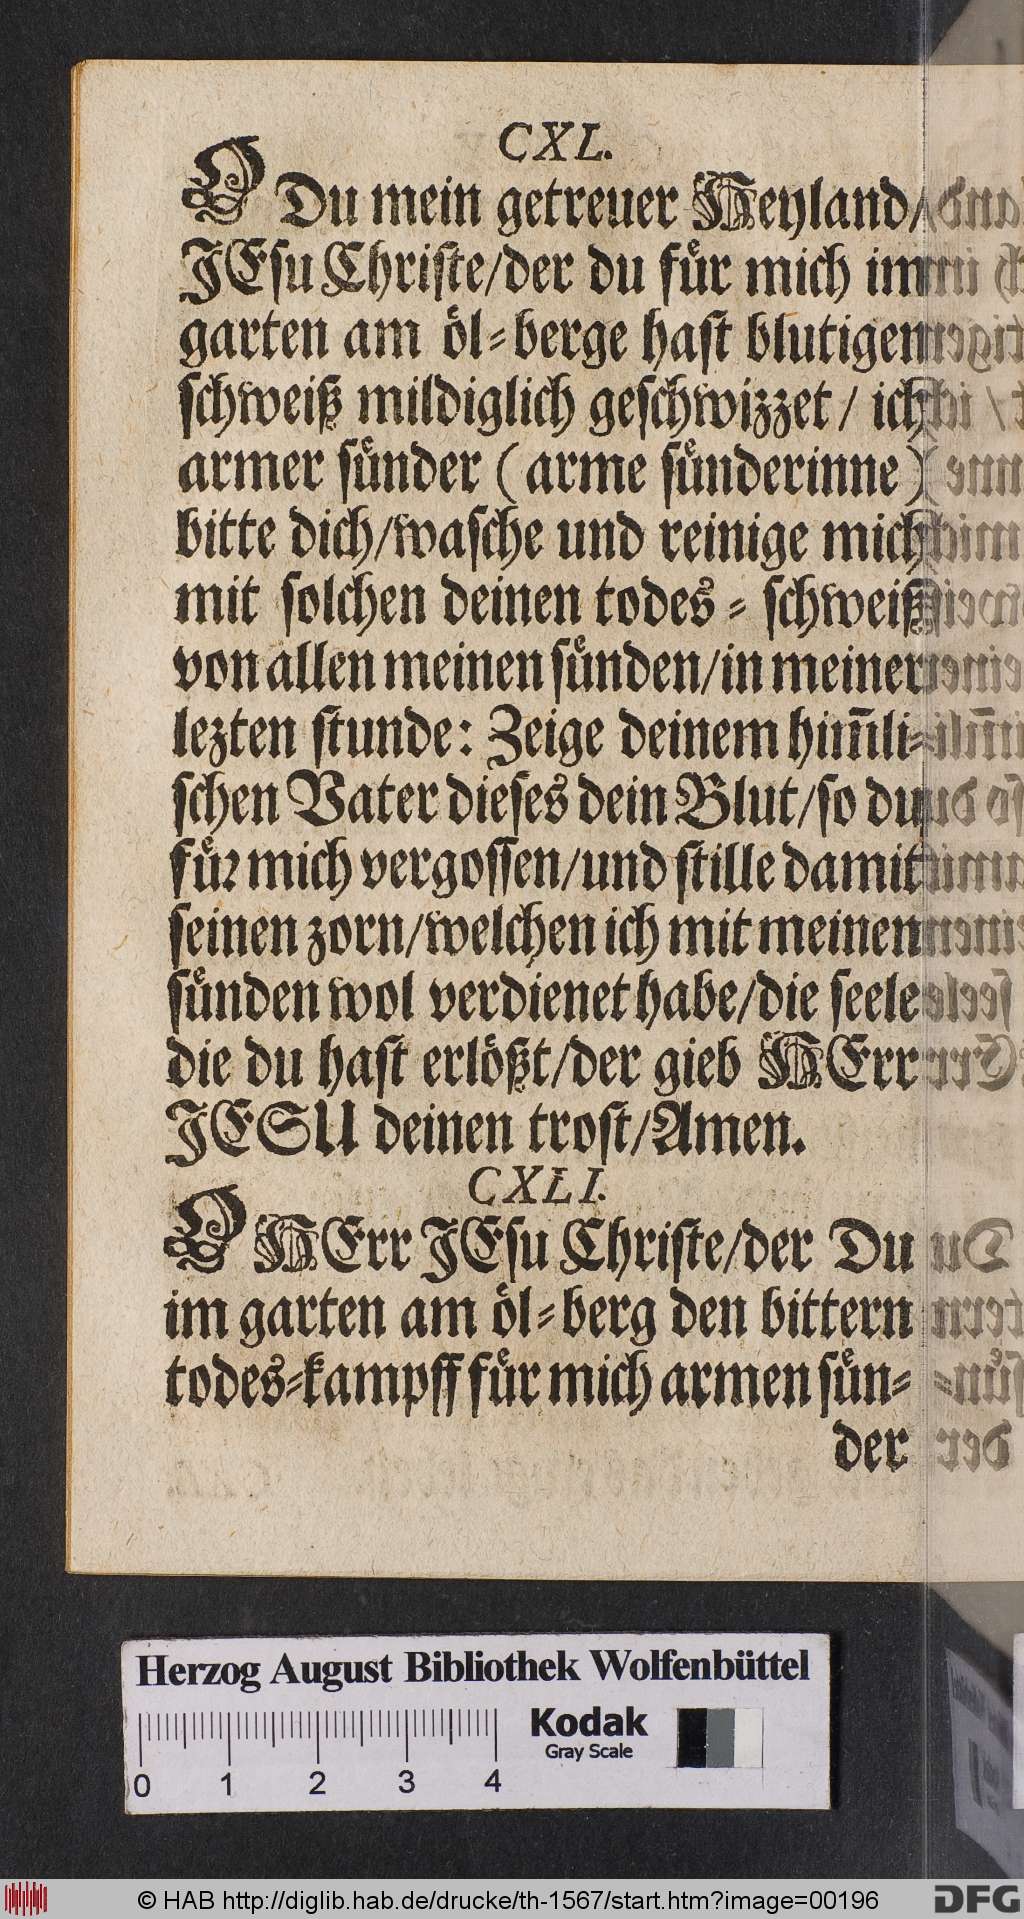 CXL.
O Du mein getreuer Heyland/
JEsu Christe/der du fuͤr mich im
garten am öl-berge hast blutigen
schweiß mildiglich geschwizzet / ich
armer suͤnder (arme suͤnderinne)
bitte dich/wasche und reinige mich
mit solchen deinen todes - schweiß
von allen meinen suͤnden/in meiner
lezten stunde: Zeige deinem him̅li-
schen Vater dieses dein Blut/so du
fuͤr mich vergossen/und stille damit
seinen zorn/welchen ich mit meinen
suͤnden wol verdienet habe/die seele
die du hast erlößt/der gieb HErr
JESU deinen trost/Amen.
CXLI.
O HErr JEsu Christe/der Du
im garten am öl-berg den bittern
todes-kampff fuͤr mich armen suͤn-
der
Herzog August Bibliothek Wolfenbüttel
Kodak
Gray Scale
0 1 2 3 4
© HAB http://diglib.hab.de/drucke/th-1567/start.htm?image=00196
DFG